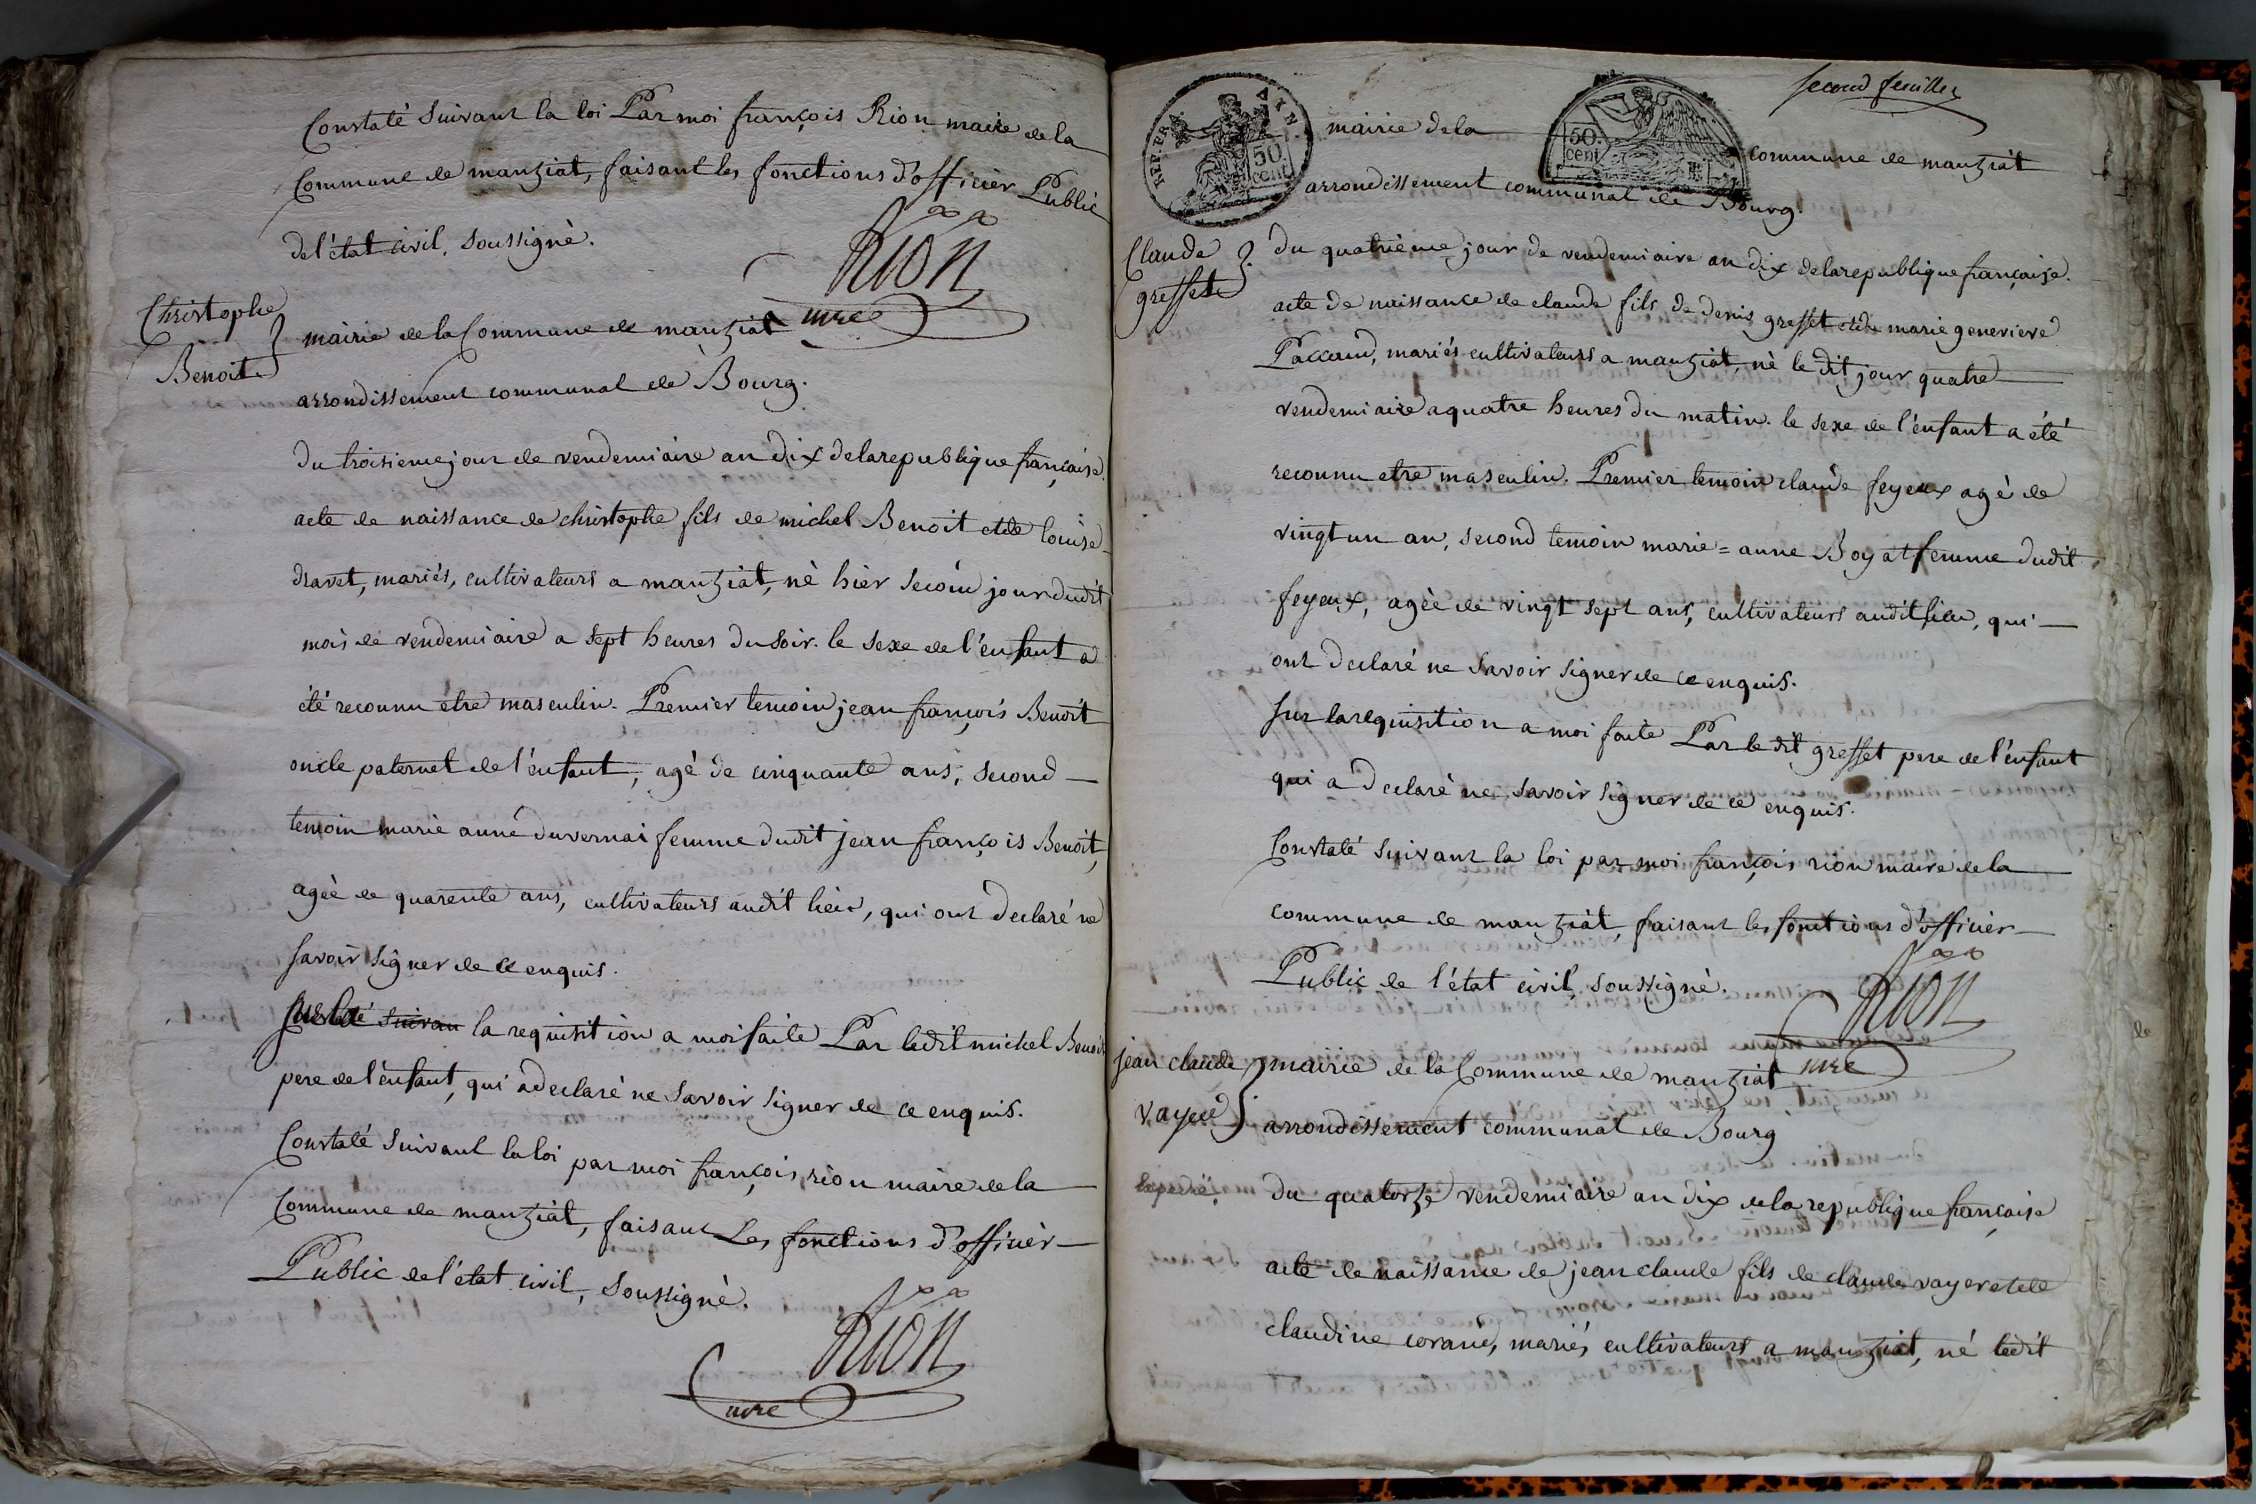 Constaté suivant la loi Par moi françois Rion maire de la
Commune de manziat, faisant les fonctions d'officier Public
de l'état civil, soussigné.
Rion
mre
Christophe
Benoit
mairie de la Commune de manziat
arrondissement communal de Bourg.
du troisieme jour de vendemiaire an dix de la republique française.
acte de naissance de christophe fils de michel Benoit et de louise
dravet, mariés, cultivateurs a manziat, né hier second jour dudit
mois de vendemiaire a sept heures du soir. le sexe de l'enfant a
été reconnu etre masculin. Premier temoin jean françois Benoit
oncle paternel de l'enfant, agé de cinquante ans, second
temoin marie anne duvernai femme dudit jean françois Benoit,
agée de quarente ans, cultivateurs audit lieu, qui ont declaré ne
savoir signer de ce enquis.
suivan la requisition a moi faite Par ledit michel Benoit
pere de l'enfant, qui a declaré ne savoir signer de ce enquis.
Constaté suivant la loi par moi françois rion maire de la
Commune de manziat, faisant Les fonctions d'officier
Public de l'état civil, soussigné.
Rion
mre
second feuillet
REP. FRA.
AXN.
50.
cent
50.
cent
mairie de la
commune de manziat
arrondissement communal de Bourg.
Claude
gresset
du quatrième jour de vendemiaire an dix de la republique française.
acte de naissance de claude fils de denis gresset et de marie genevieve
Paccaud, mariés cultivateurs a manziat, né le dit jour quatre
vendemiaire a quatre heures du matin. le sexe de l'enfant a été
reconnu etre masculin. Premier temoin claude feyeux agé de
vingt un an, second temoin marie=anne Boyat femme dudit
feyeux, agée de vingt sept ans, cultivateurs audit lieu, qui
ont declaré ne savoir signer de ce enquis.
sur la requisition a moi faite Par le dit gresset pere de l'enfant
qui a declaré ne savoir signer de ce enquis.
Constaté suivant la loi par moi françois rion maire de la
commune de manziat, faisant les fonctions d'officier
Public de l'état civil, soussigné.
Rion
mre
jean claude
vayer
mairie de la Commune de manziat
arrondissement communal de Bourg
du quatorze vendemiaire an dix de la republique française
acte de naissance de jean claude fils de claude vayer et de
claudine corand, mariés cultivateurs a manziat, né ledit